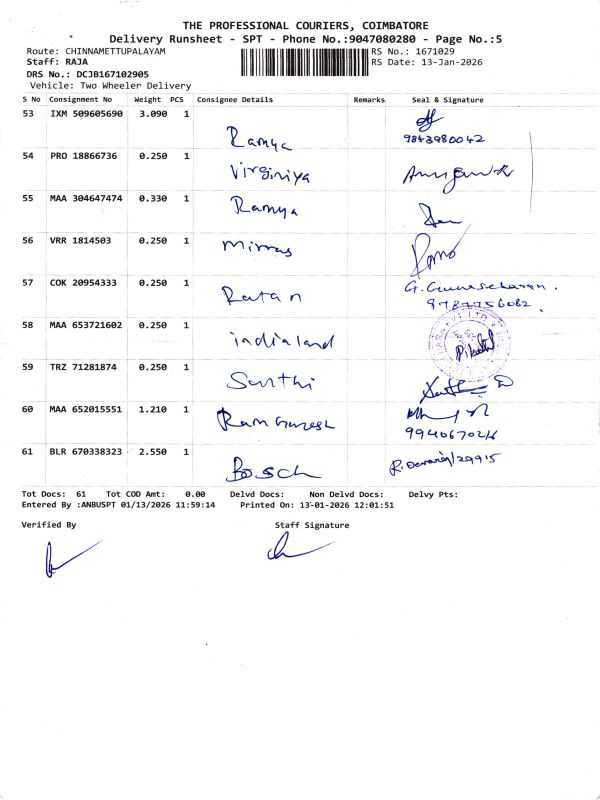 THE PROFESSIONAL COURIERS, COIMBATORE
Delivery Runsheet - SPT - Phone No.:9047080280 - Page No.:5
Route: CHINNAMETTUPALAYAM RS No.: 1671029
Staff: RAJA RS Date: 13-Jan-2026
DRS No.: DCJB167102905
Vehicle: Two Wheeler Delivery
S No Consignment No Weight PCS Consignee Details Remarks Seal & Signature
53 IXM 509605690 3.090 1
Ramya 9843980042
54 PRO 18866736 0.250 1
Virginiya
55 MAA 304647474 0.330 1
Ramya
56 VRR 1814503 0.250 1
Mirras
57 COK 20954333 0.250 1
Ratan G. Gunasekaran.
9787756082.
58 MAA 653721602 0.250 1
indialand
59 TRZ 71281874 0.250 1
Santhi
60 MAA 652015551 1.210 1
Ram Ganesh
61 BLR 670338323 2.550 1
Bosch
Tot Docs: 61 Tot COD Amt: 0.00 Delvd Docs: Non Delvd Docs: Delvy Pts:
Entered By :ANBUSPT 01/13/2026 11:59:14 Printed On: 13-01-2026 12:01:51
Verified By Staff Signature